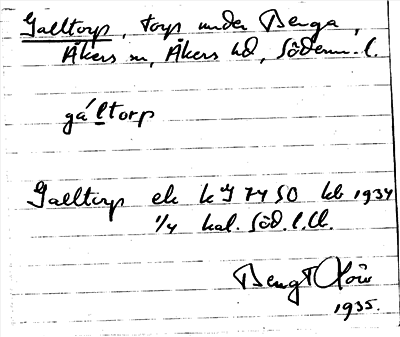 Galltorp, torp under Berga,
Åkers sn, Åkers hd, Söderm. l.
gáltorp
Galltorp ek k J 7450 kb 1934
1/4 kal. Söd. l.
Bengt
1935.